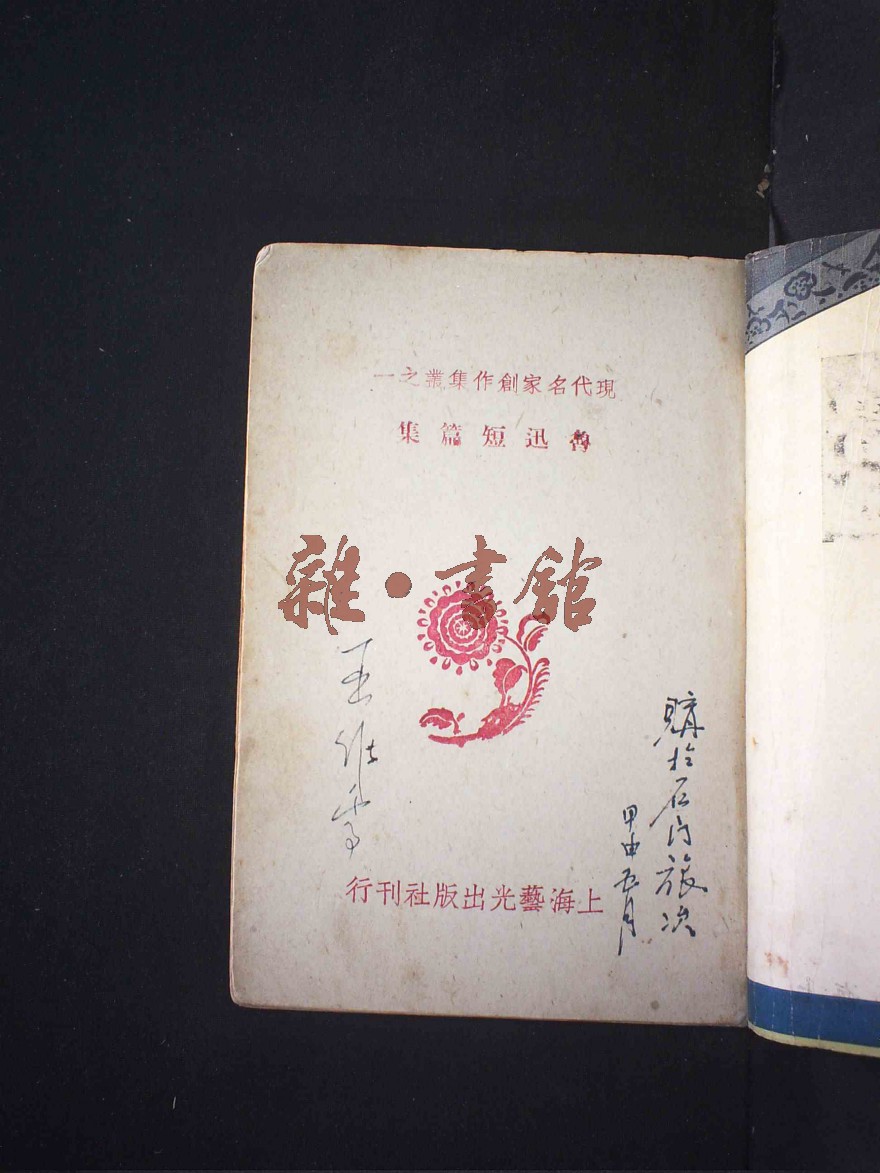 現代名家創作集叢之一
魯迅短篇集
雜·書館
購於石门旅次
甲申五月
上海藝光出版社刊行